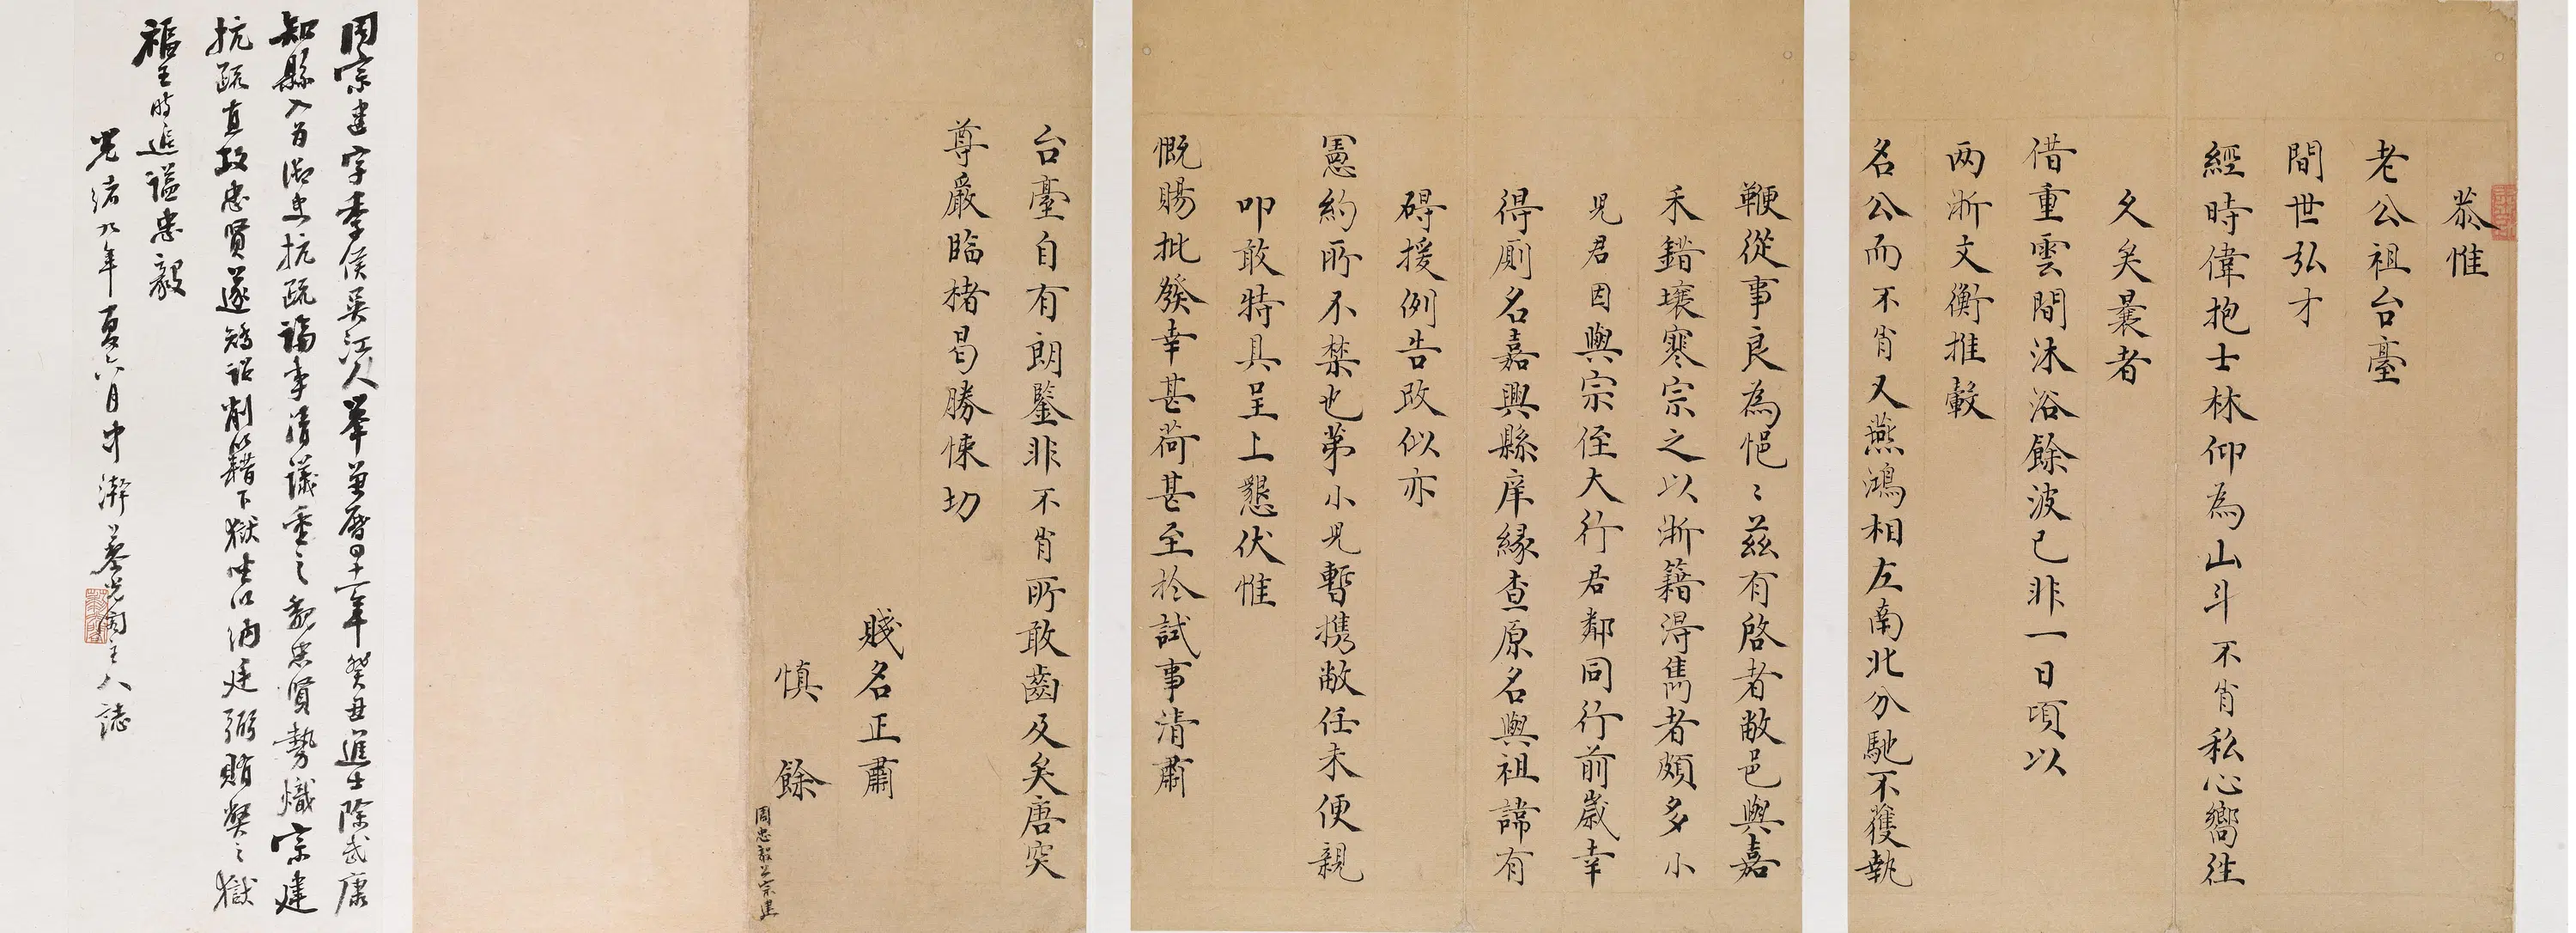 恭惟
老公祖台臺
間世弘才
經時偉抱士林仰為山斗不肖私心嚮往
久矣曩者
借重雲間沐浴餘波已非一日頃以
两浙文衡推轂
名公而不肖又燕鴻相左南北分馳不獲執
鞭從事良為悒〻茲有啓者敝邑與嘉
禾錯壤寒宗之以浙籍得雋者頗多小
児君因與宗侄大行君鄰同行前歲幸
得廁名嘉興縣庠緣查原名與祖諱有
碍援例告改似亦
憲約所不禁也第小児暫携敝任未便親
叩敢特具呈上懇伏惟
慨賜批發幸甚荷甚至於試事清肅
台臺自有朗鑒非不肖所敢齒及矣唐突
尊嚴臨楮曷勝悚切
賤名正肅
慎餘
周忠毅公宗建
周宗建字季侯吳江人舉萬曆四十一年癸丑進士除武康
知縣入為御史抗疏論事清議重之魏忠賢勢熾宗建
抗疏直攻忠賢遂矯詔削籍下獄坐以納廷弼賄斃之獄
福王時追謚忠毅
光緒九年夏六月中澣 主人誌